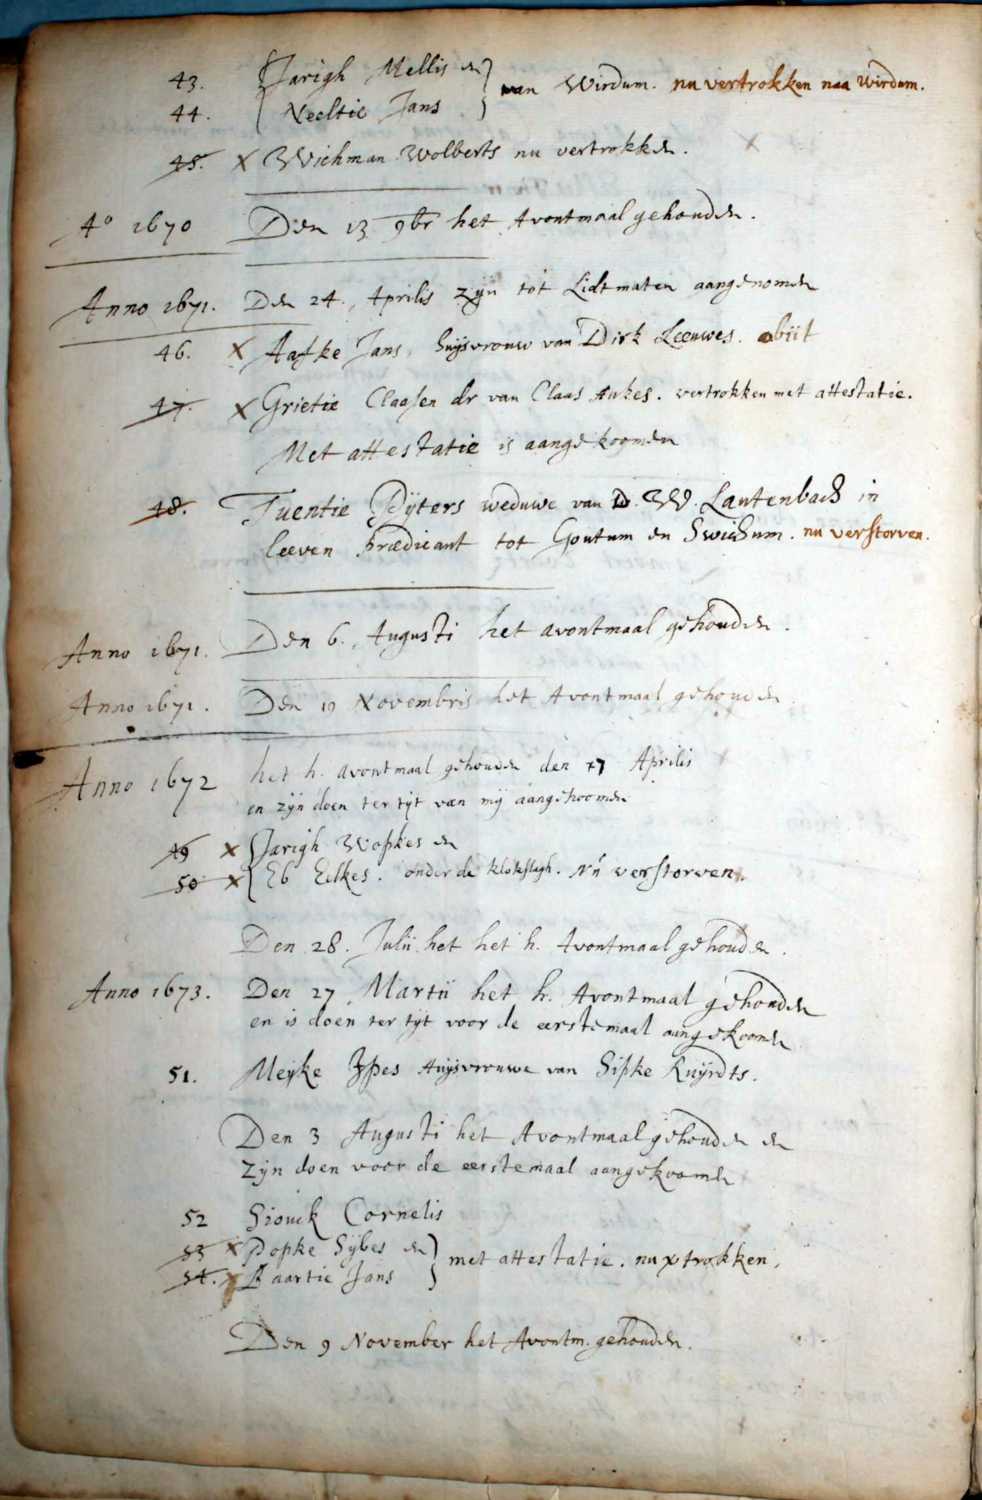 43. Jarigh Mellis en } van Wirdum. nu vertrokken naa wirdum.
44. Neeltie Jans
45. X Wichman Wolberts nu vertrokken.
Aº 1670 Den 13 9br het Avontmaal gehouden.
Anno 1671. Den 24. Aprilis zijn tot Lidtmaten aangenomen
46. X Aafke Jans, huijsvrouw van Dirk Leeuwes. obiit
47. X Grietie Claasen dr van Claas Aukes. vertrokken met attestatie.
Met attestatie is aangekoomen
48. Tuentie Pijters weduwe van D. W. Lautenbach in
leeven prædicant tot Goutum en Swichum. nu verstorven.
Anno 1671. Den 6. Augusti het avontmaal gehouden.
Anno 1671. Den 19 Novembris het Avontmaal gehouden
Anno 1672 het h. avontmaal gehouden den 7 Aprilis
en zijn doen ter tijt van mij aangekoomen
49 X Jarigh Wopkes en
50 X Eb Eelkes. onder de klokslagh. Nú verstorven.
Den 28. Julii het het h. Avontmaal gehouden.
Anno 1673. Den 27 Martii het h. Avontmaal gehouden
en is doen ter tijt voor de eerstemaal aangekoomen
51. Meyke Ypes Huijsvrouwe van Sipke Luijrdts.
Den 3 Augusti het Avontmaal gehouden en
zijn doen voor de eerstemaal aangekoomen
52 Siouck Cornelis
53 X Popke Sijbes en } met attestatie. nu xtrokken.
54. X Baartie Jans
Den 9 November het Avontm. gehouden.